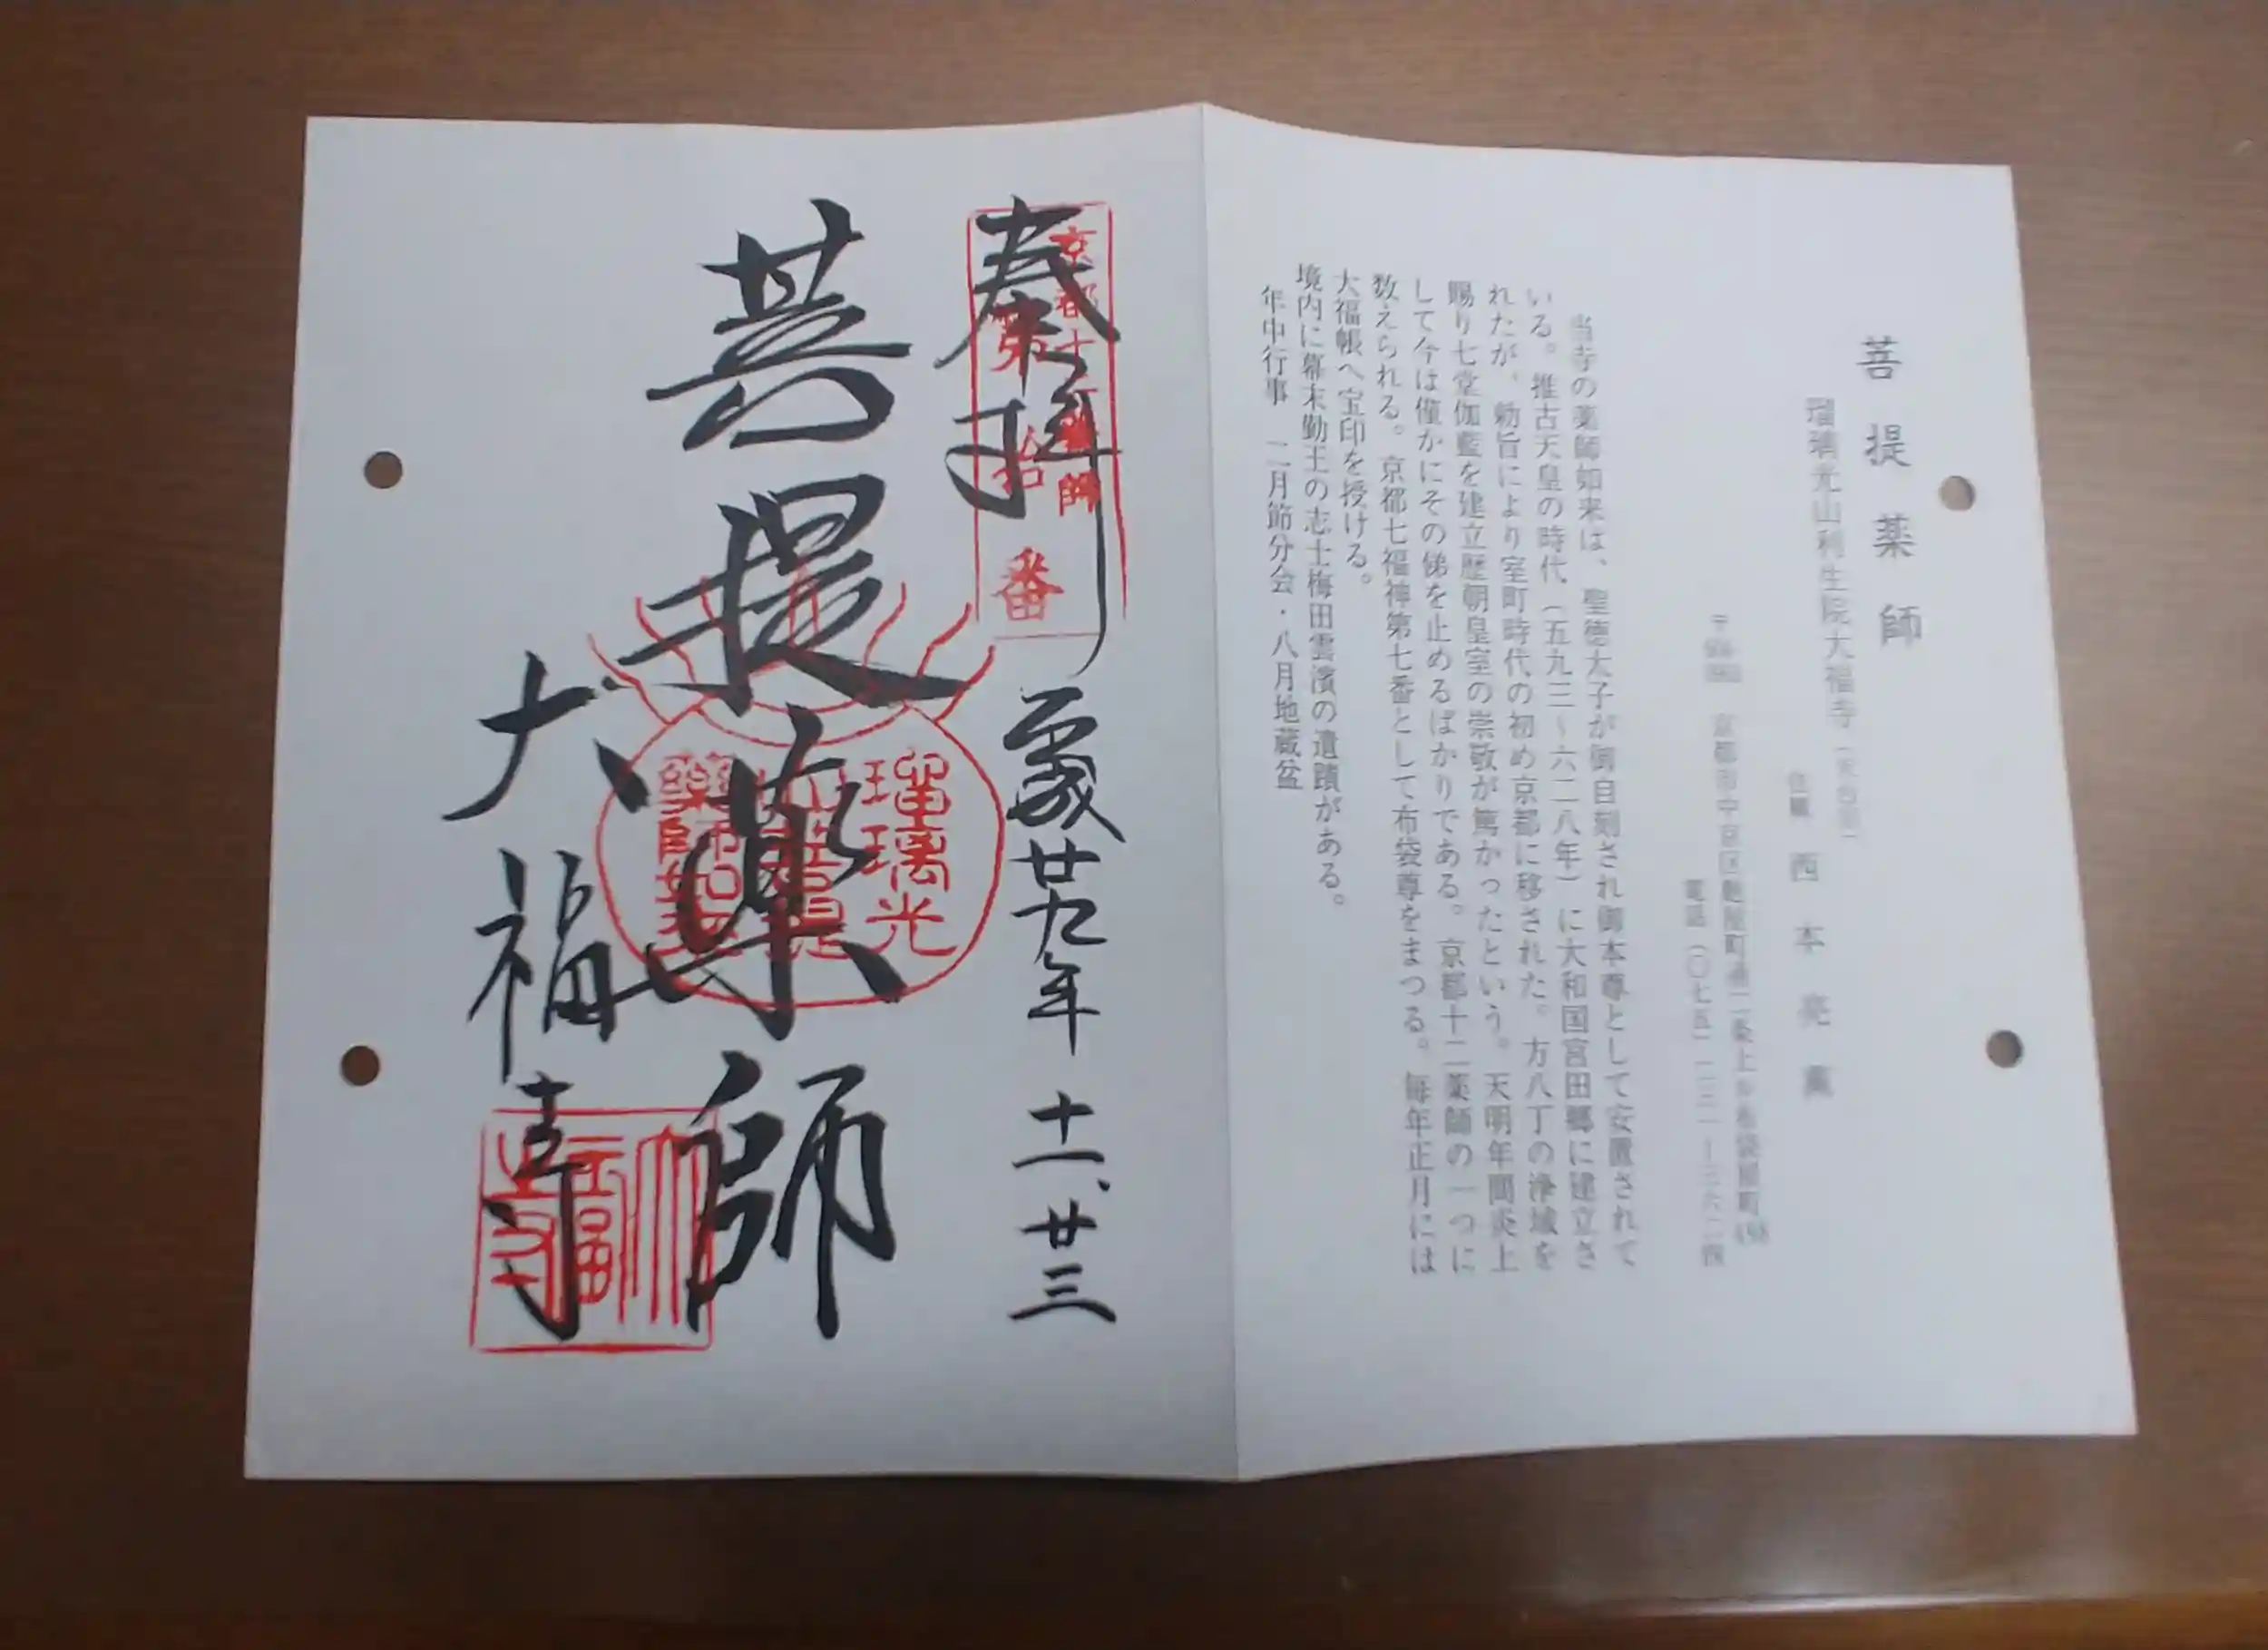 菩提薬師
瑠璃光山利生院大福寺（天台宗）
住職 西本亮薫
京都市中京区麩屋町通二条上ル布袋屋町498
電話（〇七五）二三一ー三六二四
当寺の薬師如来は、聖徳太子が御自刻され御本尊として安置されて
いる。推古天皇の時代（五九三～六二八年）に大和国宮田郷に建立さ
れたが、勅旨により室町時代の初め京都に移された。方八丁の浄域を
賜り七堂伽藍を建立歴朝皇室の崇敬が篤かったという。天明年間炎上
して今は僅かにその俤を止めるばかりである。京都十二薬師の一つに
数えられる。京都七福神第七番として布袋尊をまつる。毎年正月には
大福帳へ宝印を授ける。
境内に幕末勤王の志士梅田雲濱の遺蹟がある。
年中行事 二月節分会・八月地蔵盆
奉拝
京都十二薬師
第拾番
廿九年 十一、廿三
菩提薬師
瑠璃光
大福寺